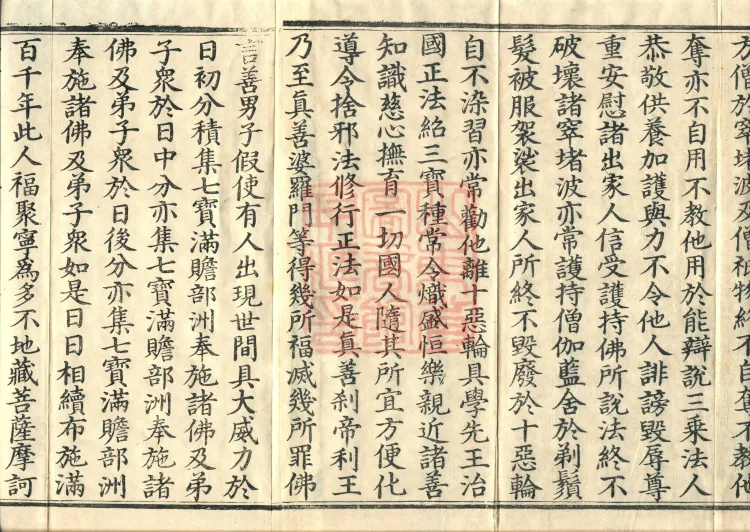 方僧於窣堵波及僧祇物終不自奪不教他
奪亦不自用不教他用於能辯說三乘法人
恭敬供養加護與力不令他人誹謗毀辱尊
重安慰諸出家人信受護持佛所說法終不
破壞諸窣堵波亦常護持僧伽藍舍於剃鬚
髮被服袈裟出家人所終不毀廢於十惡輪
自不染習亦常勸他離十惡輪具學先王治
國正法紹三寶種常令熾盛恒樂親近諸善
知識慈心撫育一切國人隨其所宜方便化
導令捨邪法修行正法如是真善剎帝利王
乃至真善婆羅門等得幾所福滅幾所罪佛
言善男子假使有人出現世間具大威力於
日初分積集七寶滿贍部洲奉施諸佛及弟
子眾於日中分亦集七寶滿贍部洲奉施諸
佛及弟子眾於日後分亦集七寶滿贍部洲
奉施諸佛及弟子眾如是日日相續布施滿
百千年此人福聚寧為多不地藏菩薩摩訶